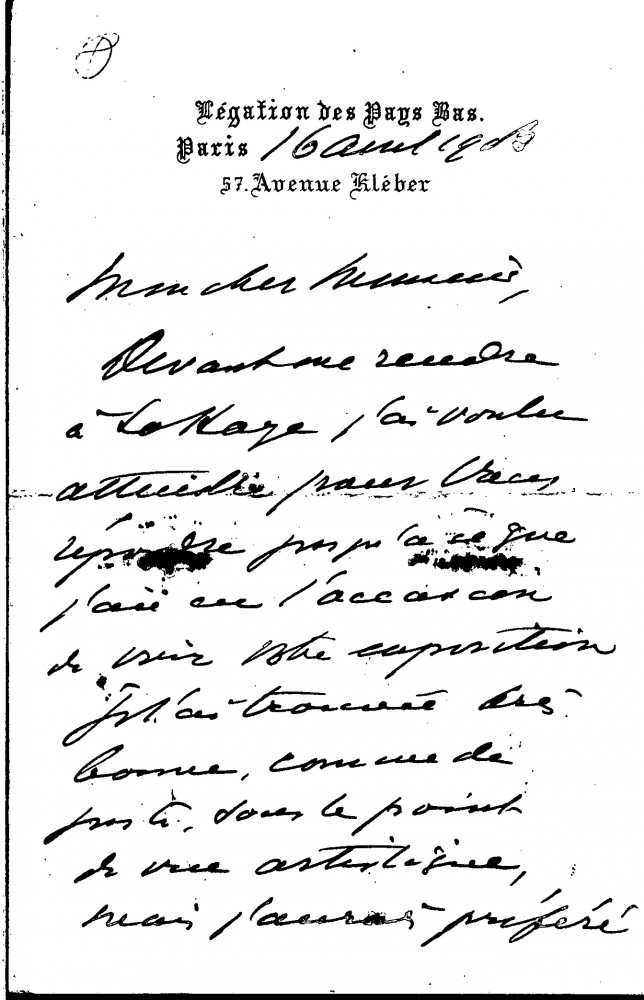 Légation des Pays Bas.
Paris 16 avril 1903
57. Avenue Kléber
Mon cher
Devant me rendre
à La Haye j'ai voulu
attendre pour vous
répondre jusqu'à ce que
j'aie eu l'occasion
de voir votre exposition
Je l'ai trouvée très
bonne, comme de
juste, sous le point
de vue artistique,
mais j'aurais préféré